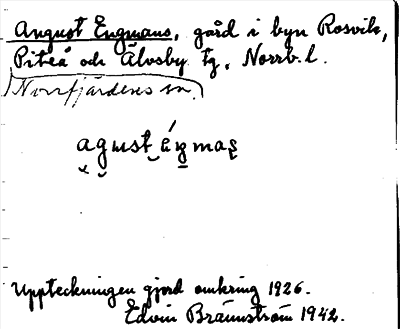 August Engmans, gård i byn Rosvik,
Piteå och Älvsby tg, Norrb. l.
Norrfjärdens sn.
agust éŋmas
Uppteckningen gjord omkring 1926.
Edvin Brännström 1942.